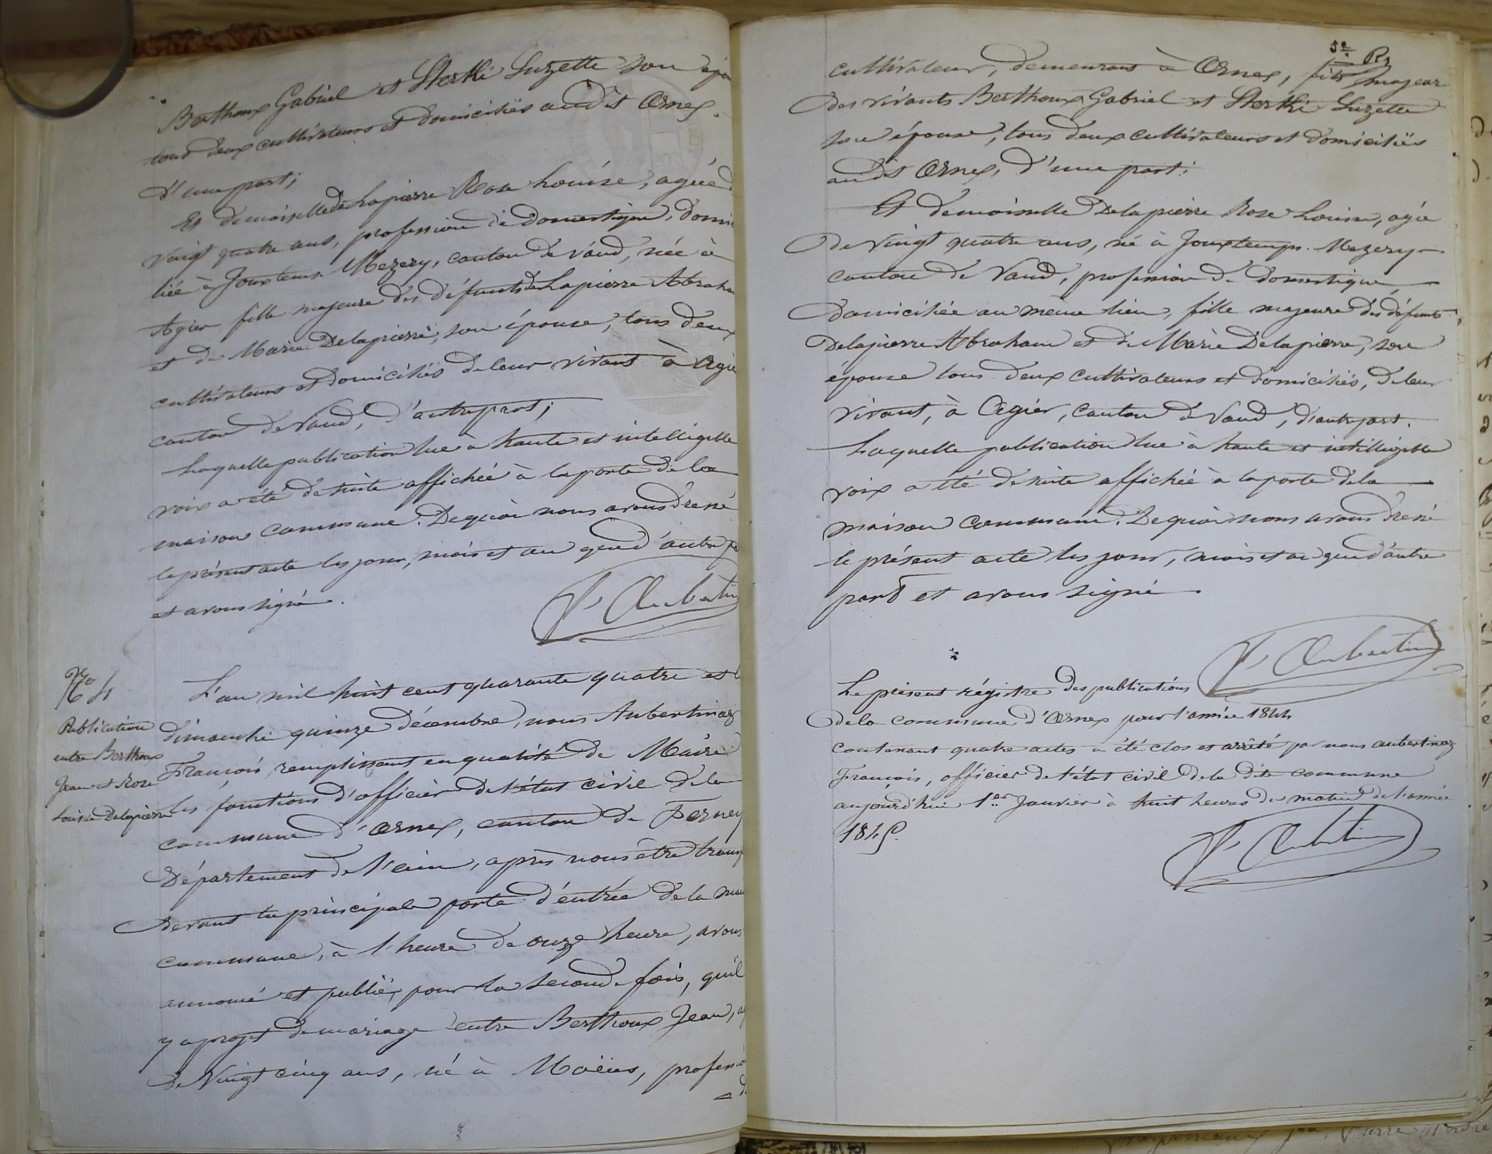 Berthoux Gabriel et Sterki Suzette son épou
tous deux cultivateurs et domiciliés audit Ornex.
d'une part;
Et demoiselle Delapierre Rose Louise, agée d
vingt quatre ans, profession de domestique, domi
liée à Jouxtens Mezery, canton de Vaud, née à
Agier fille majeure des défunts Delapierre Abraham
et de Marie Delapierre, son épouse, tous deux
cultivateurs et domiciliés de leur vivant à Agie
canton de Vaud, d'autre part;
Laquelle publication lue à haute et intelligible
voix a été de suite affichée à la porte de la
maison commune. De quoi nous avons dressé
le présent acte les jour, mois et an que d'autre pa
et avons signé.
F. Aubertin
No 4
Publication
entre Berthoux
Jean et Rose
Louise Delapierre
L'an mil huit cent quarante quatre et l
dimanche quinze décembre, nous Aubertinaz
François, remplissant en qualité de Maire
les fonctions d'officier de l'état civil de la
commune d'Ornex, canton de Ferney
Département de l'ain, après nous être transp
devant la principale porte d'entrée de la mai
commune, à l'heure de onze heure, avons
annoncé et publié, pour la seconde fois, qu'il
y a projet de mariage entre Berthoux Jean, a
de Vingt cinq ans, né à Moëns, profess
de
5e
cultivateur, demeurant à Ornex, fils majeur
des vivants Berthoux Gabriel et Sterki Suzette
son épouse, tous deux cultivateurs et domiciliés
audit Ornex, d'une part;
Et demoiselle Delapierre Rose Louise, agée
de vingt quatre ans, né à Jouxtemps. Mezery
canton de Vaud, profession de domestique,
domiciliée au même lieu, fille majeure des défunts,
Delapierre Abraham et de Marie Delapierre, son
epouse tous deux cultivateurs et domiciliés, de leur
vivant, à Agier, canton de Vaud, d'autre part.
Laquelle publication lue à haute et intelligible
voix a été de suite affichée à la porte de la
maison commune. De quoi nous avons dressé
le présent acte les jour, mois et an que d'autre
part et avons signé
F. Aubertin
Le présent régistre des publications
de la commune d'Ornex pour l'année 1844
contenant quatre actes a été clos et arrêté par nous aubertinaz
François, officier de l'état civil de la dite commune
aujourd'hui 1er Janvier à huit heures du matin de l'année
1845.
F. Aubertin